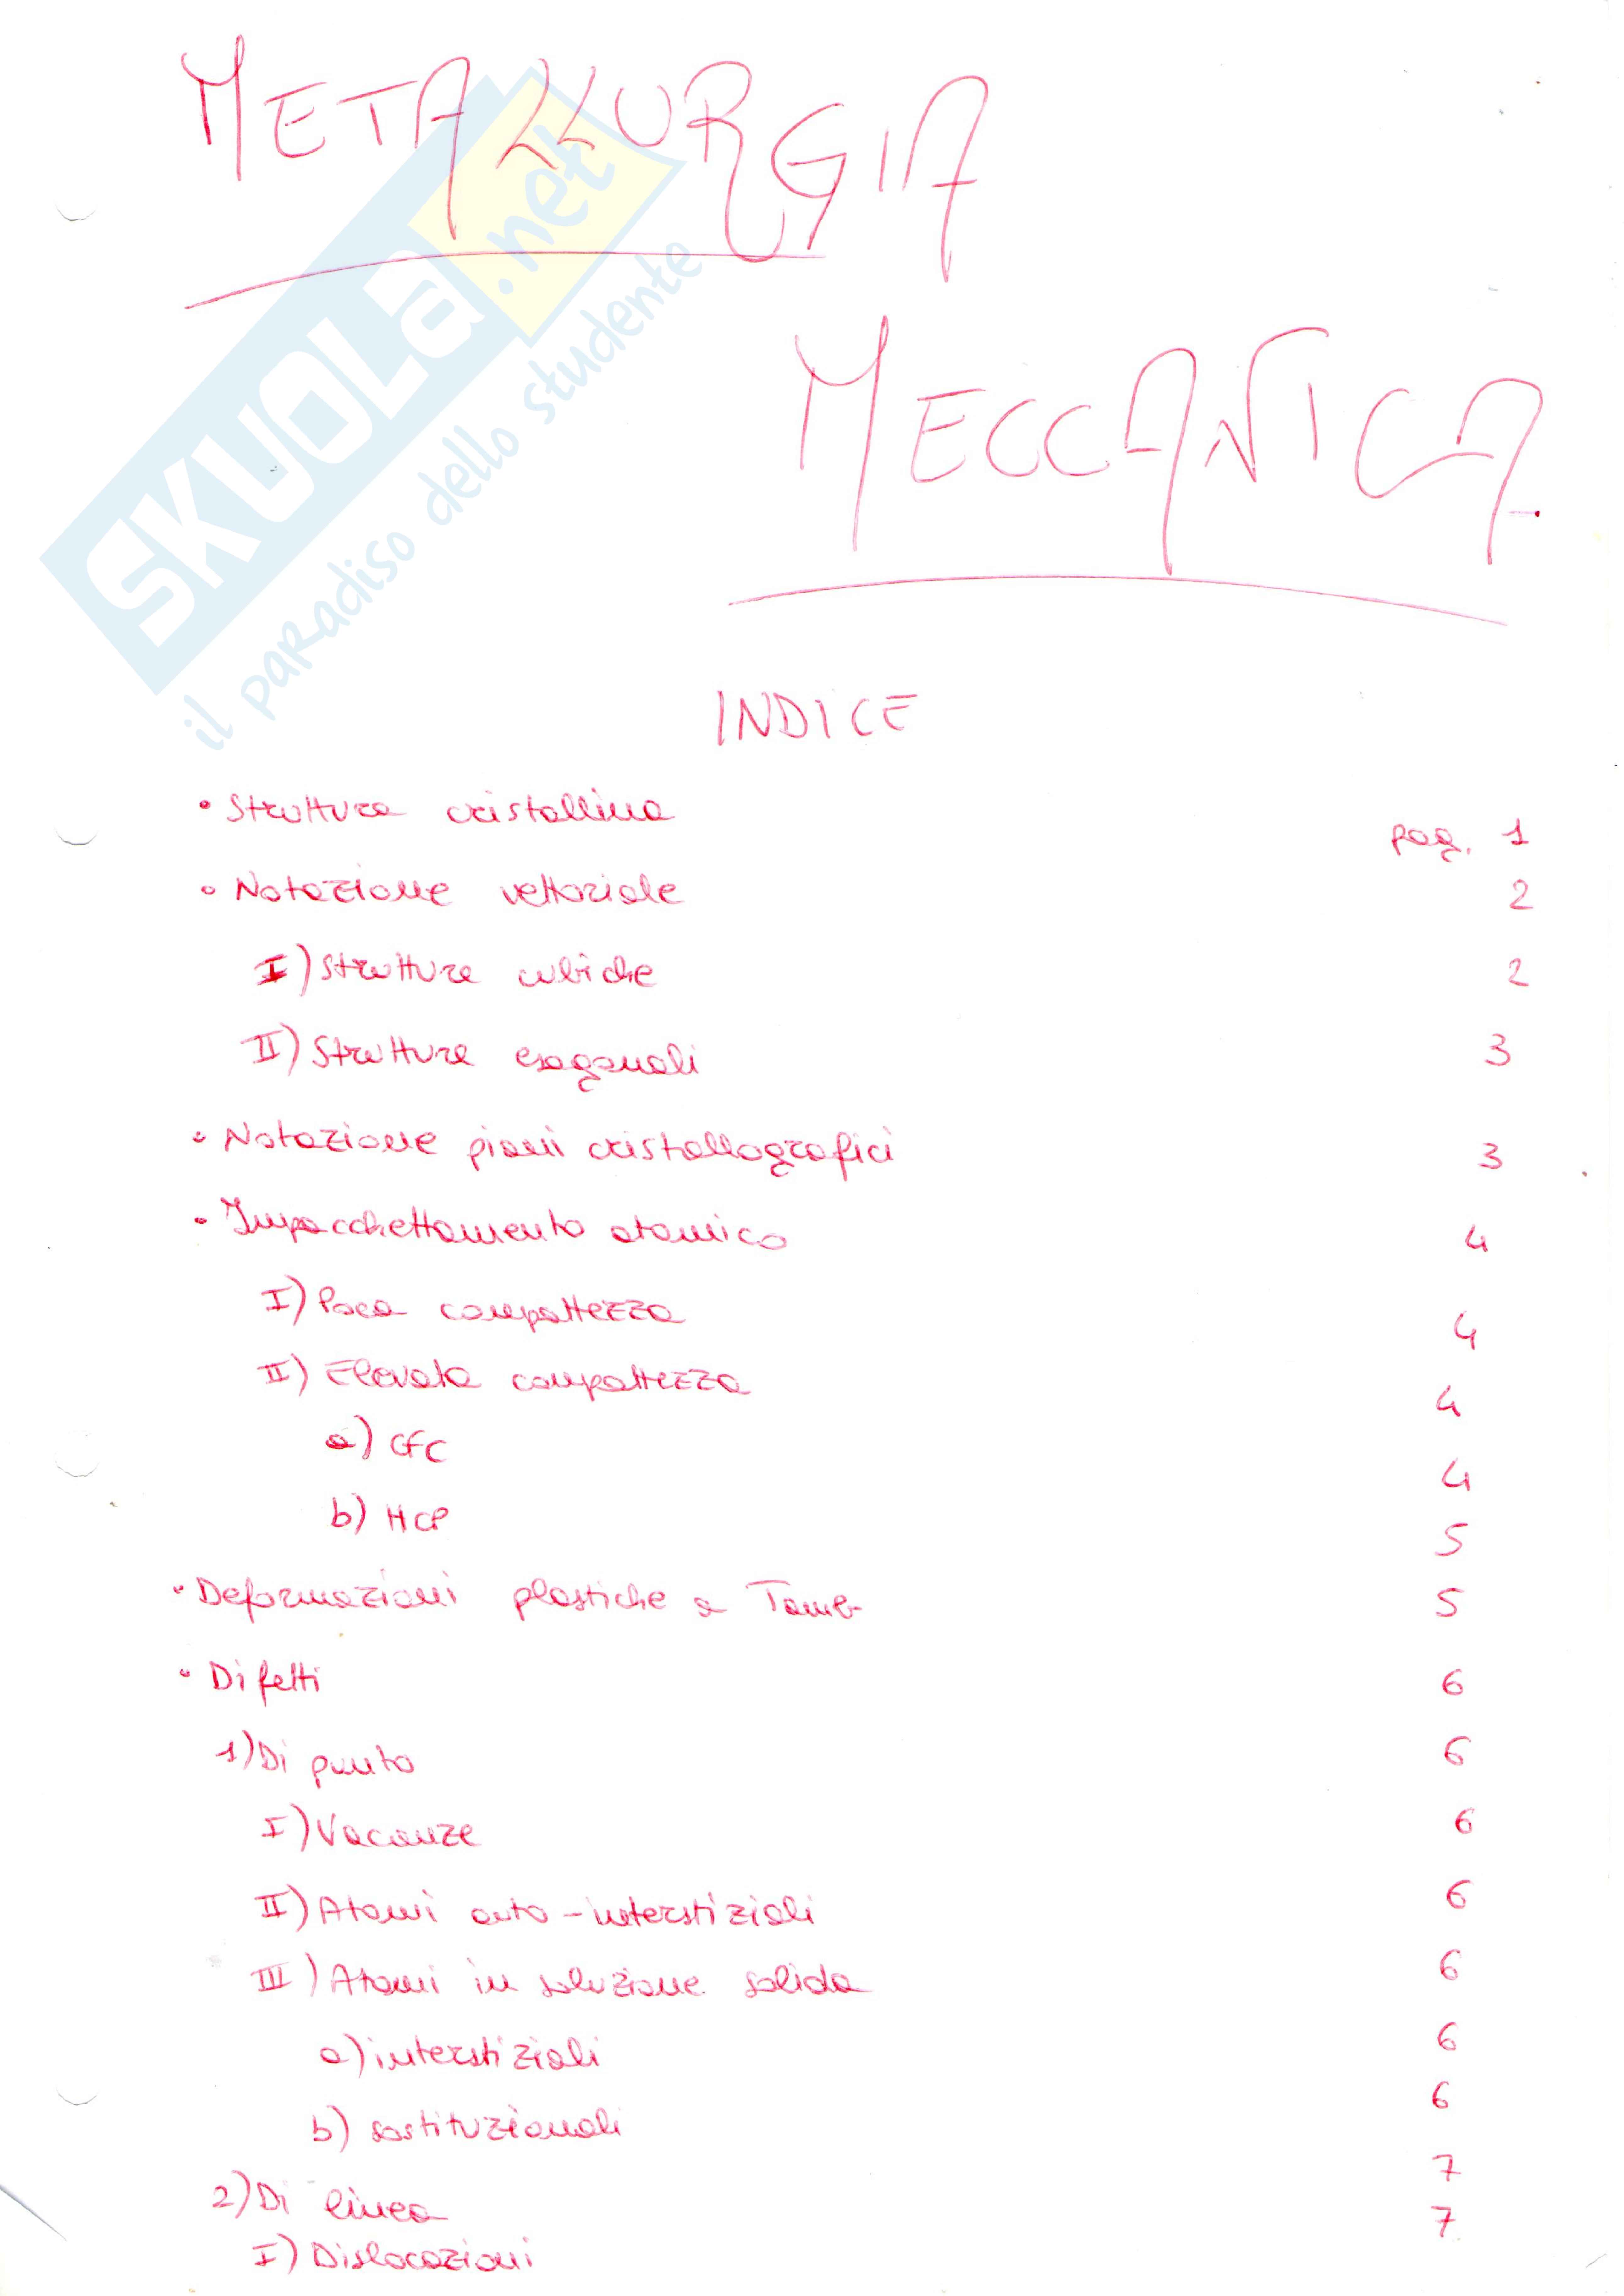 METALLURGIA
MECCANICA
SKUOLA.net
il paradiso dello studente
INDICE
• Struttura cristallina pag. 1
• Notazione vettoriale 2
I) Strutture cubiche 2
II) Strutture esagonali 3
• Notazione piani cristallografici 3
• Impacchettamento atomico 4
I) Poca compattezza 4
II) Elevata compattezza 4
a) CFC 4
b) HCP 5
• Deformazioni plastiche a Tamb 5
• Difetti 6
1) Di punto 6
I) Vacanze 6
II) Atomi auto-interstiziali 6
III) Atomi in soluzione solida 6
a) interstiziali 6
b) sostituzionali 6
2) Di linea 7
I) Dislocazioni 7